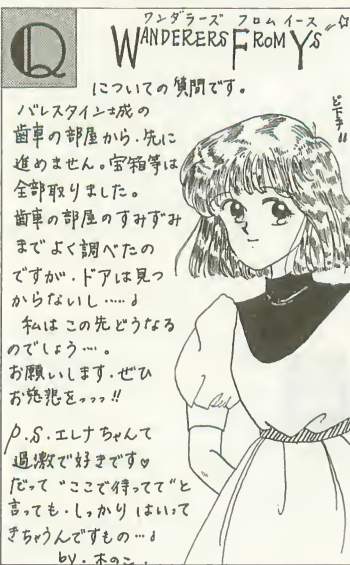 Q
ワンダラーズ フロム イース
WANDERERS FROM YS
についての質問です。
バレスタイン城の
歯車の部屋から、先に
進めません。宝箱等は
全部取りました。
歯車の部屋のすみずみ
までよく調べたの
ですが、ドアは見つ
からないし……
私はこの先どうなる
のでしょう…。
お願いします。ぜひ
お慈悲をっっっ!!
P.S.エレナちゃんて
過激で好きです♡
だって"ここで待ってて"と
言っても、しっかりはいって
きちゃうんですもの…
by.木のこ.